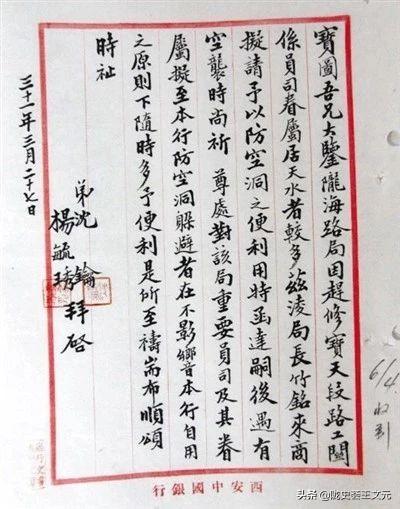 寶圖吾兄大鑒隴海路局因趕修寶天段路工關
係員司眷屬居天水者較多茲淩局長竹銘來商
擬請予以防空洞之便利用特函達嗣後遇有
空襲時尚祈 尊處對該局重要員司及其眷
屬擬至本行防空洞躲避者在不影響本行自用
之原則下隨時多予便利是所至禱耑布順頌
時祉
弟沈
楊毓琇 拜啓
三十一年三月二十七日
6/4 收到
西安中國銀行
头条 @陇史荟王文元